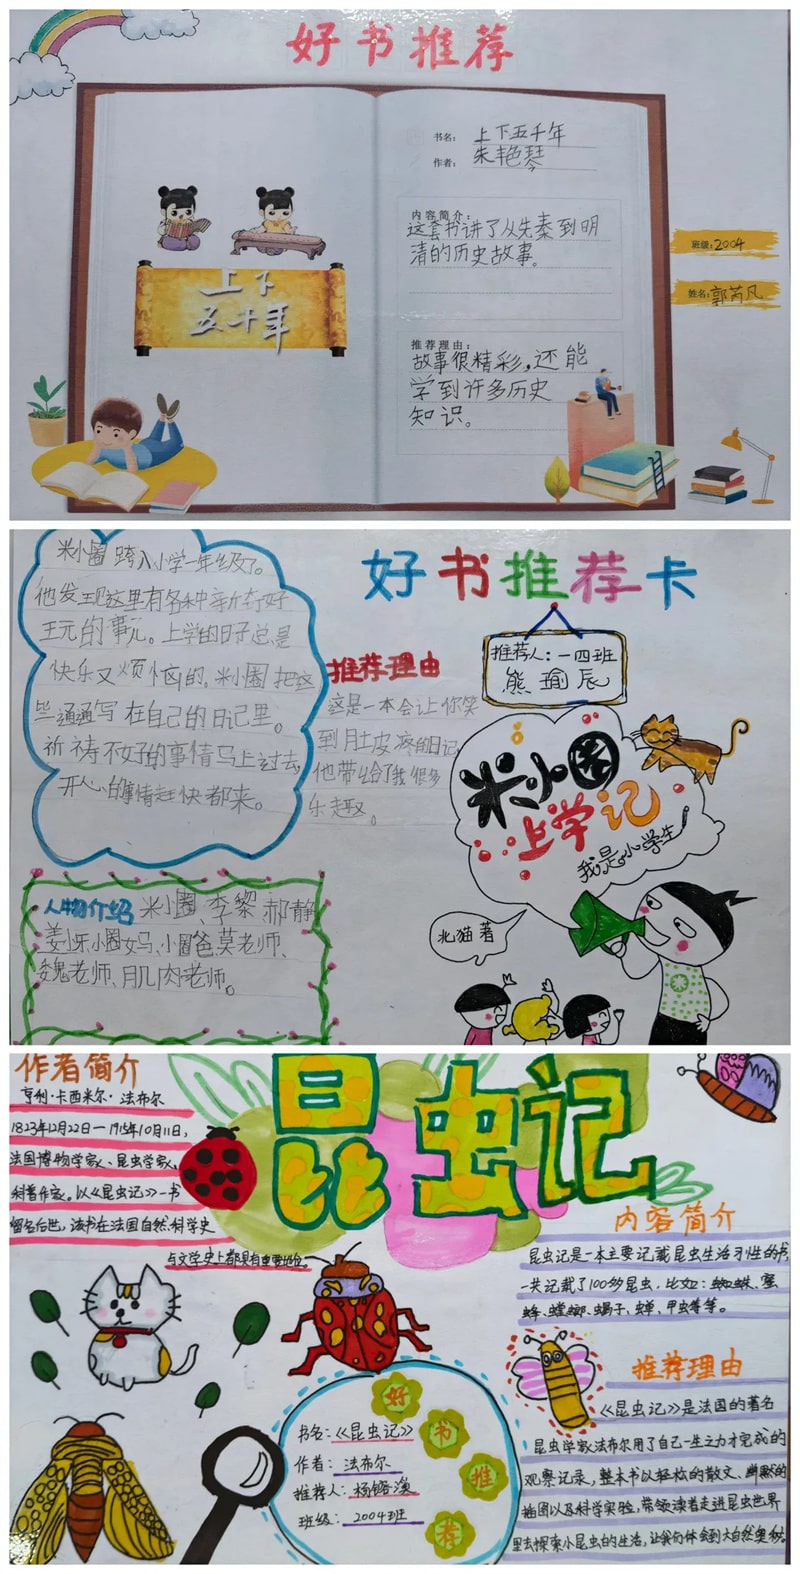 好书推荐
书名：上下五千年
作者：朱艳琴
内容简介：
这套书讲了从先秦到明
清的历史故事。
推荐理由：
故事很精彩，还能
学到许多历史
知识。
班级：2004
姓名：郭芮凡
上下
五千年
好书推荐卡
米小圈 跨入小学一年级了。
他发现这里有各种新奇好
玩的事儿。上学的日子总是
快乐又烦恼的。米小圈把这
些通通写在自己的日记里。
祈祷不好的事情马上过去，
开心的事情赶快都来。
推荐理由
这是一本会让你笑
到肚皮疼的日记
他带给了我很多
乐趣。
推荐人：一四班
熊瑜辰
米小圈
上学记
我是小学生
北猫著
人物介绍 米小圈、李黎 郝静
姜小牙小圈妈、小圈爸、莫老师、
魏老师、肌肉老师。
昆虫记
作者简介
亨利·卡西米尔·法布尔
1823年12月22日—1915年10月11日，
法国博物学家、昆虫学家，
科普作家。以《昆虫记》一书
留名后世，该书在法国自然科学史
与文学史上都具有重要地位。
内容简介
昆虫记是一本主要记载昆虫生活习性的书，
一共记载了100多昆虫，比如：蜘蛛、蜜
蜂、螳螂、蝎子、蝉、甲虫等等。
推荐理由
《昆虫记》是法国的著名
昆虫学家法布尔用了自己一生之力才完成的
观察记录，整本书以轻松的散文、幽默的
插图以及科学实验，带领读者走进昆虫世界
里去探索小昆虫的生活，让我们体会到大自然奥秘。
好书推荐
书名：《昆虫记》
作者：法布尔
推荐人：杨
班级：2004班